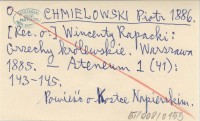 CHMIELOWSKI Piotr 1886.
[Rec. o:] Wincenty Rapacki:
Grzechy królewskie. Warszawa
1885. – Ateneum 1 (41):
143-145.
Powieść o Kostce Napierskim.